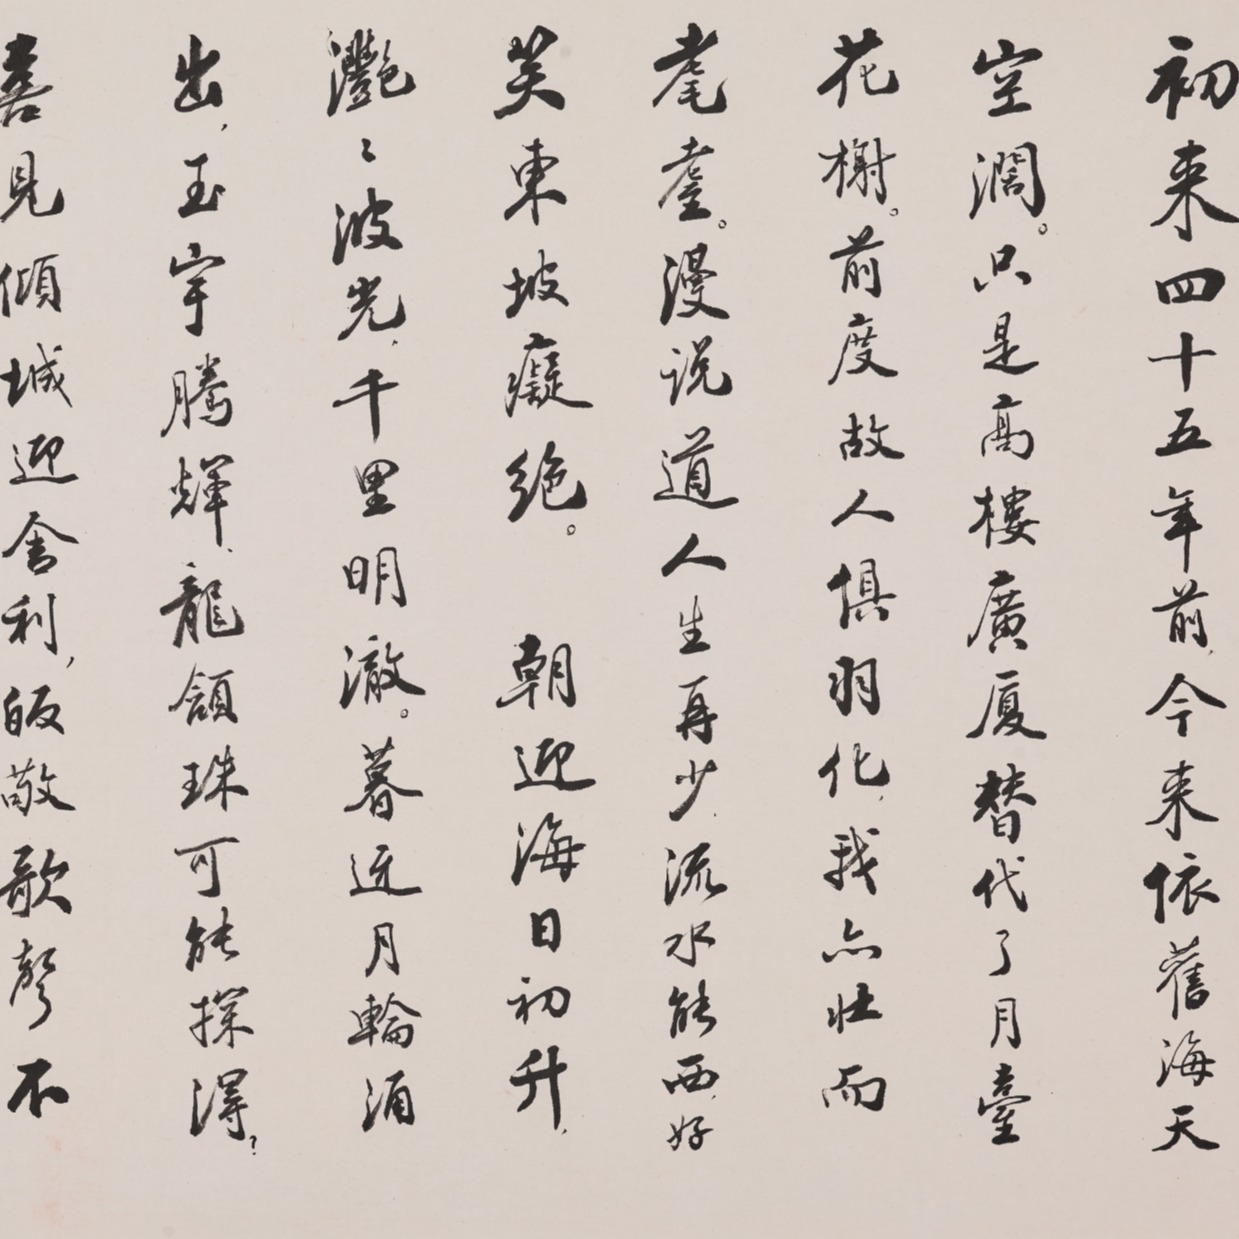 初来四十五年前,今来依舊海天
空濶。只是高樓廣厦替代了月臺
花榭。前度故人俱羽化,我亦壮而
耄耋。漫说道人生再少,流水能西,好
笑東坡癡绝。 朝迎海日初升,
灔〻波光,千里明澈。暮近月輪涌
出,玉宇腾輝,龍頷珠可能探得?
喜見傾城迎舍利,皈敬歌聲不